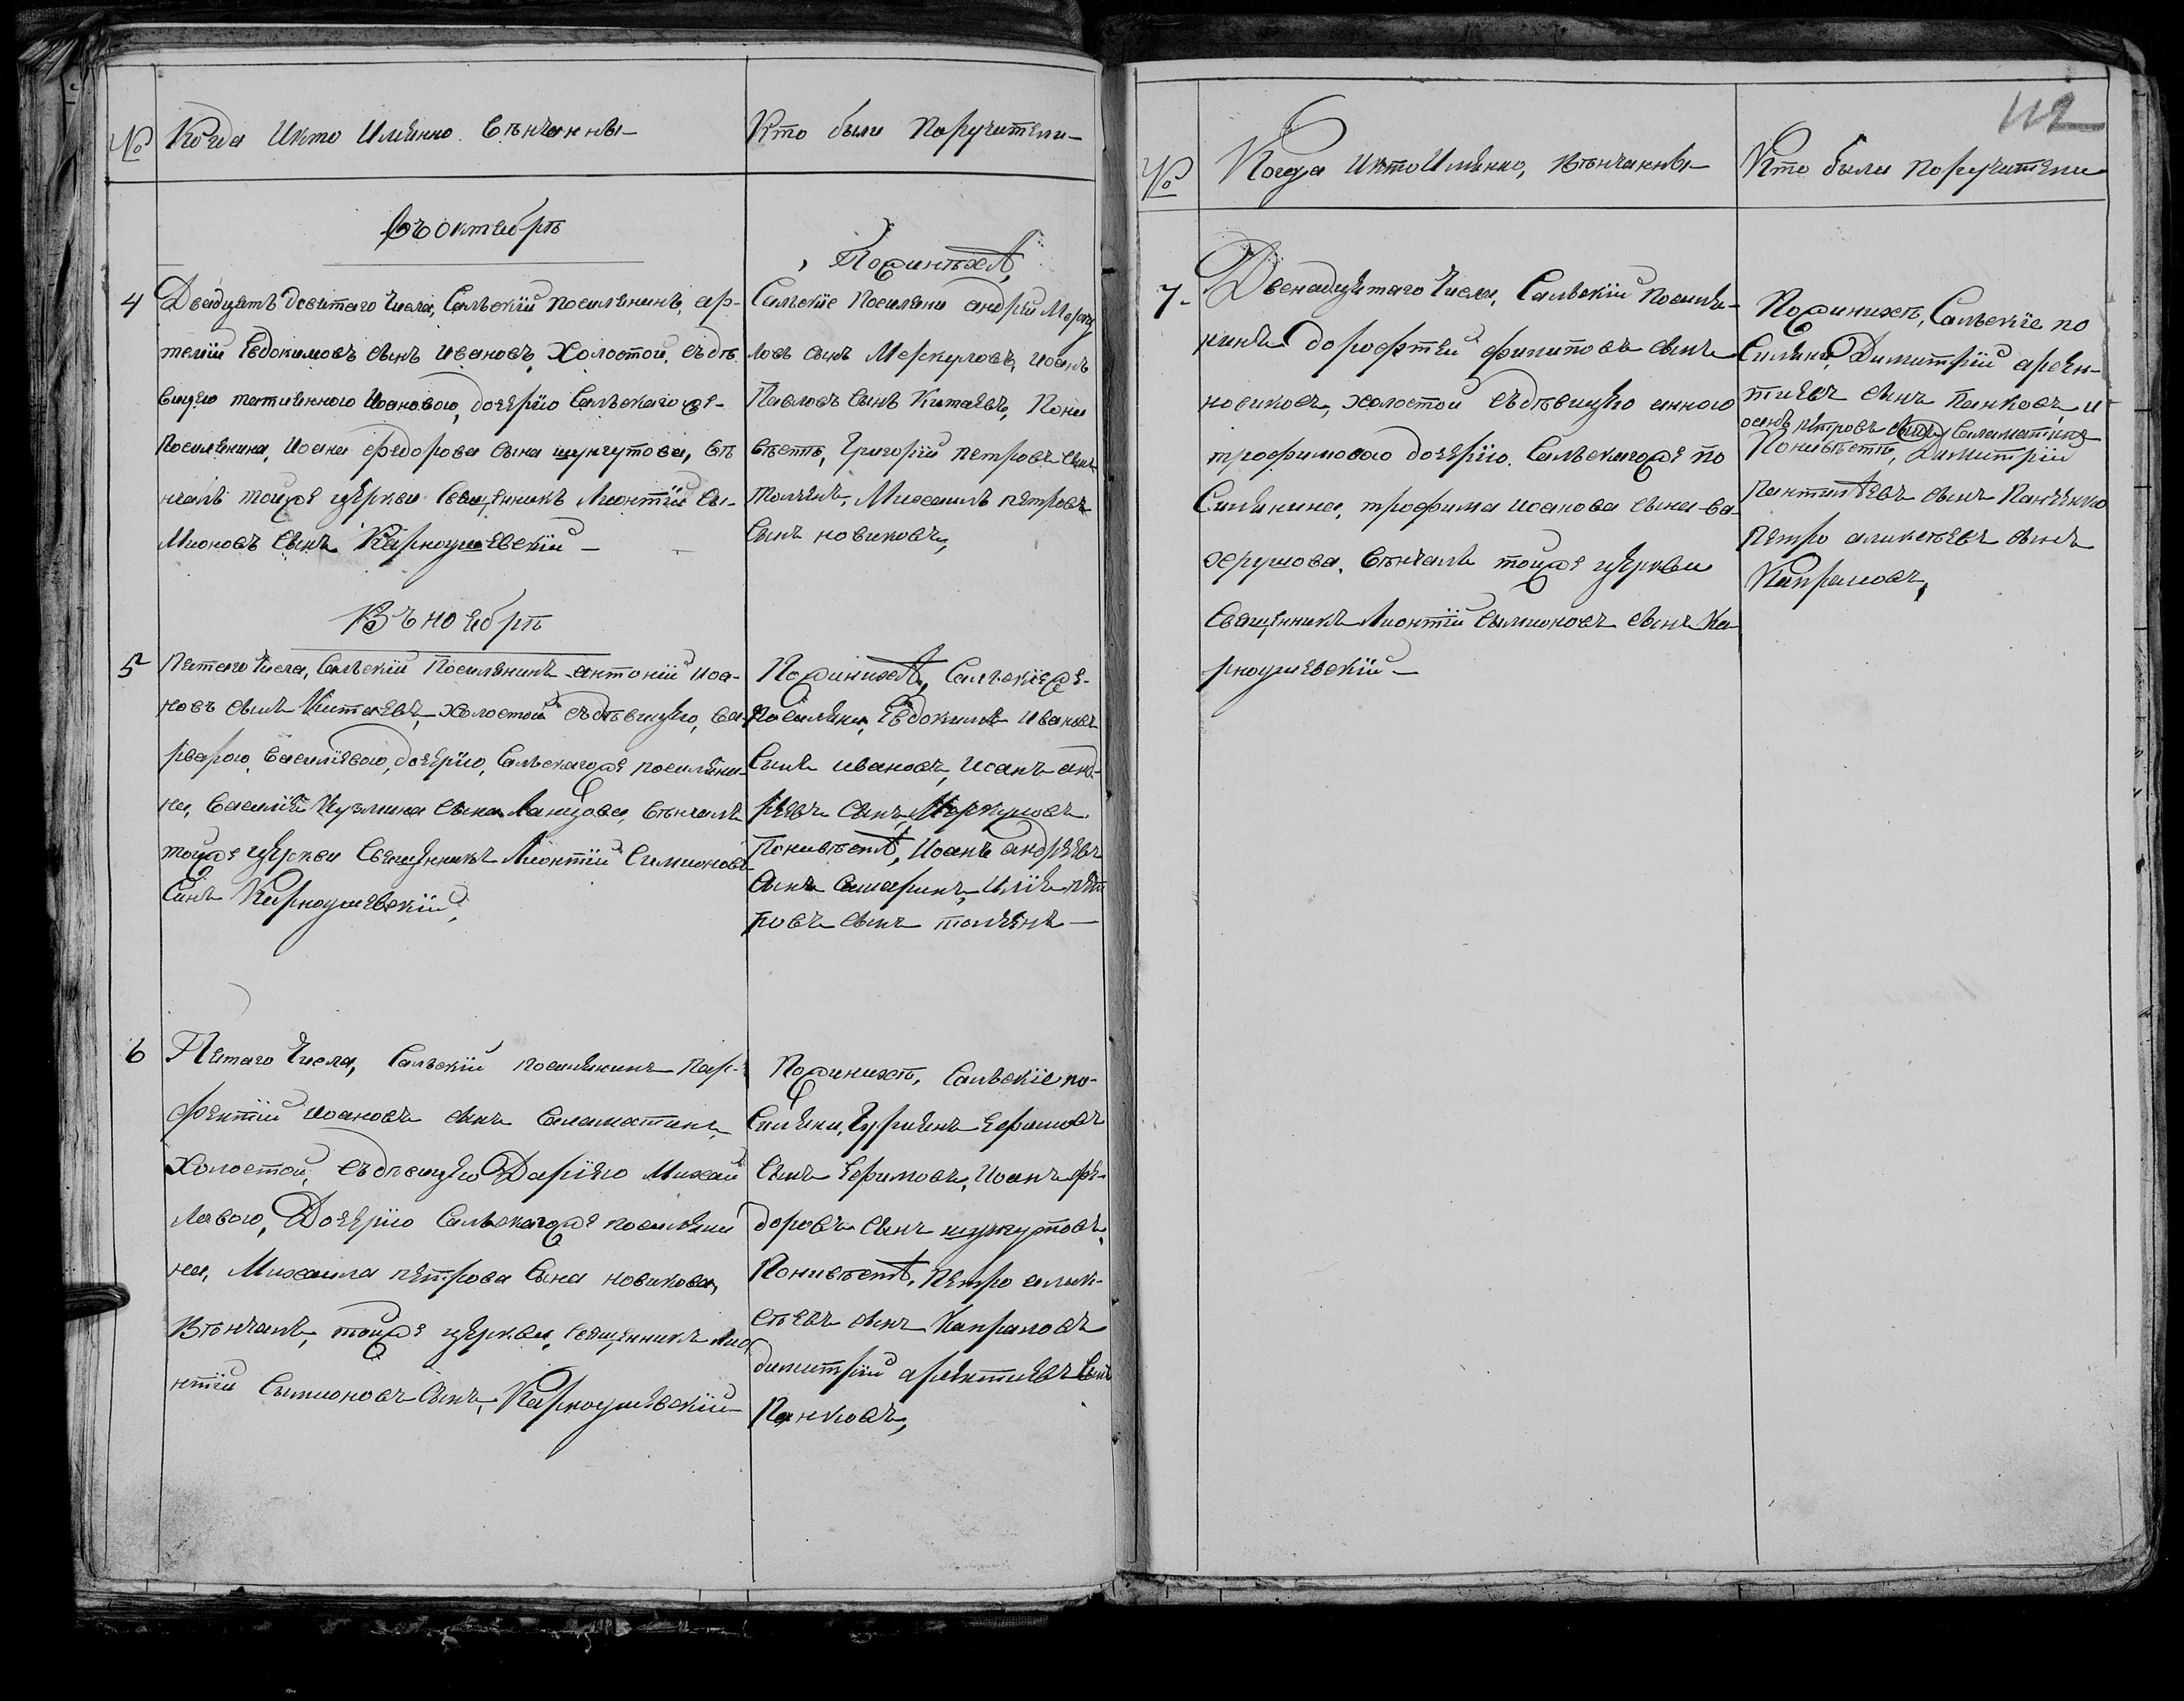 № Когда И кто Имѣнно Вѣнчанны
Кто были Поручители
Въ октебрѣ
4 Двадцетъ девятаго Числа, Сальскїй поселенинъ, ар-
темїй Евдокимовъ сынъ Ивановъ, Холостой, съ дѣ
вицею татиенною Иоановою, дочерїю Сальскаго же
поселенина, Иоана федорова сына шункутова, Вѣ
нчалъ тоиже церкви Священникъ Лионтїи Си-
мионовъ Сынъ Карноушевскїй
Поженихѣ,
Сальскїе поселени андрїй Мерку
ловъ сынъ Меркуловъ, иоанъ
Павловъ Сынъ Китаевъ, Поне
вѣстѣ, Григорїй петровъ сынъ
толченъ, Михаилъ петровъ
Сынъ новиковъ,
Въ ноебрѣ
5 Петаго Числа, Сальскїй Поселенинъ антонїй иоа-
новъ сынъ Китаевъ, холостой съ дѣвицею, ва-
рварою, василїевою, дочерїю, Сальскагоже поселени-
на, Василїя Кузмина сына Ланцова, Вѣнчалъ
тоиже церкви Священникъ Лионтїй Симионовъ
Синъ Карноушевскїй,
Поженихѣ, Сальскїеже
Поселени, Евдокимъ Ивановъ
Синъ ивановъ, Иоанъ анд-
реевъ сынъ Меркуловъ
Поневѣстѣ, Иоанъ андреевъ
Сынъ Самаринъ, Илїя пет
ровъ сынъ толченъ
6 Петаго Числа, Сальскїй поселенинъ пар-
фентїй иоановъ сынъ Саламатинъ,
Холостой, съ дѣвицею Дарїею Михаи
ловою, Дочерїю Сальскагоже поселени
на, Михаила петрова Сына новикова,
Вѣнчалъ, тоиже церкви, священникъ Лио
нтїи Симионовъ Сынъ, Карноушевскїй
Поженихѣ, Сальскїе по-
Силени, Гурїенъ Ефимовъ
Сынъ Ефимовъ, Иоанъ фе-
доровъ сынъ шункутовъ,
Поневѣстѣ, Петро алик-
сѣевъ сынъ Капраловъ
димитрїй арентиевъ Сынъ
Панковъ,
112
№ Когда И кто Имѣнно, Вѣнчанны
Кто были Поручители
7 Двенадцетаго Числа, Сальскїй поселе-
нинъ дорофтей филиповъ сынъ
новиковъ, холостой съ дѣвицею анною
трофимовою дочерїю. Сальскагоже по
Силенина, трофима иоанова сына ва-
херушова, Вѣнчалъ тоиже церкви
Священникъ Лионтїй Симионовъ сынъ Ка
рноушевскїй
Поженихѣ, Сальскїе по
Силени, Димитрїй арен-
тиевъ сынъ Панковъ, и
оанъ петровъ сынъ Саламатинъ
Поневѣстѣ, Димитрїй
Пантилѣевъ сынъ Панченко
Петро аликсѣевъ сынъ
Капраловъ,